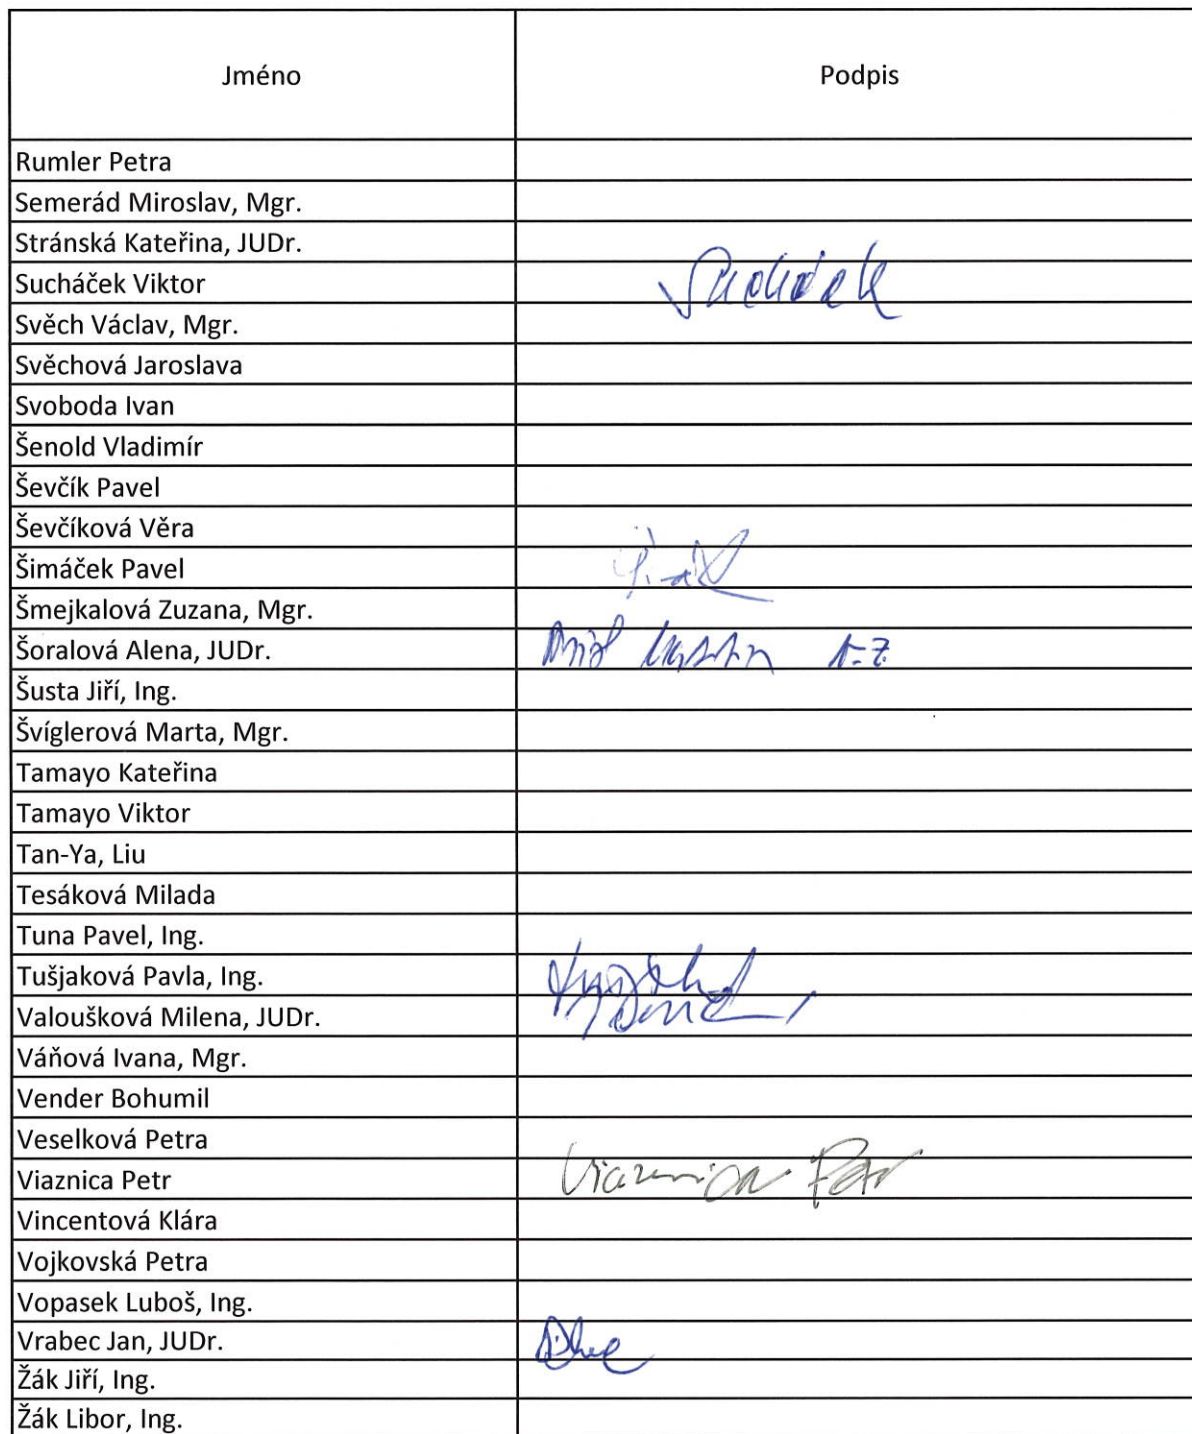 Jméno Podpis
Rumler Petra
Semerád Miroslav, Mgr.
Stránská Kateřina, JUDr.
Sucháček Viktor
Svěch Václav, Mgr.
Svěchová Jaroslava
Svoboda Ivan
Šenold Vladimír
Ševčík Pavel
Ševčíková Věra
Šimáček Pavel
Šmejkalová Zuzana, Mgr.
Šoralová Alena, JUDr.
Šusta Jiří, Ing.
Švíglerová Marta, Mgr.
Tamayo Kateřina
Tamayo Viktor
Tan-Ya, Liu
Tesáková Milada
Tuna Pavel, Ing.
Tušjaková Pavla, Ing.
Valoušková Milena, JUDr.
Váňová Ivana, Mgr.
Vender Bohumil
Veselková Petra
Viaznica Petr Viaznica Petr
Vincentová Klára
Vojkovská Petra
Vopasek Luboš, Ing.
Vrabec Jan, JUDr.
Žák Jiří, Ing.
Žák Libor, Ing.